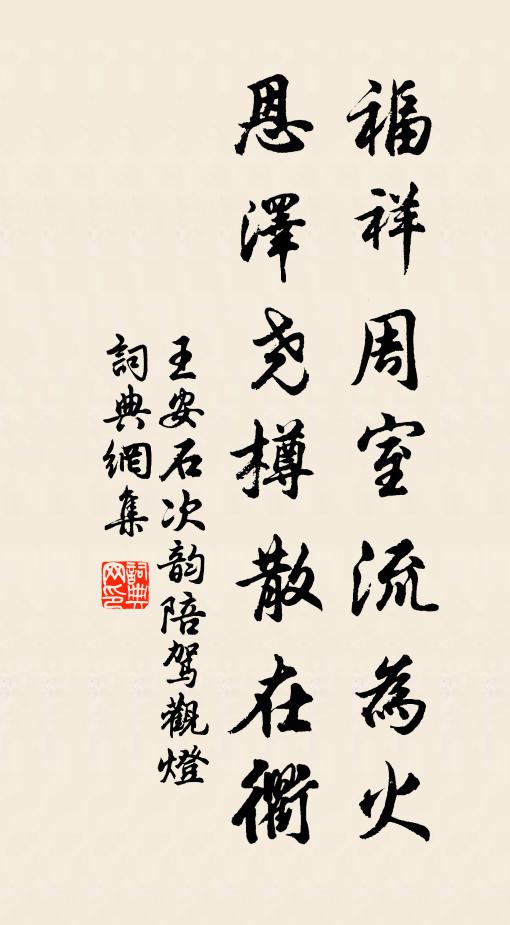 福祥周室流為火
恩澤尧樽散在衢
王安石次韵陪駕觀燈
詞典網集
詞典网印